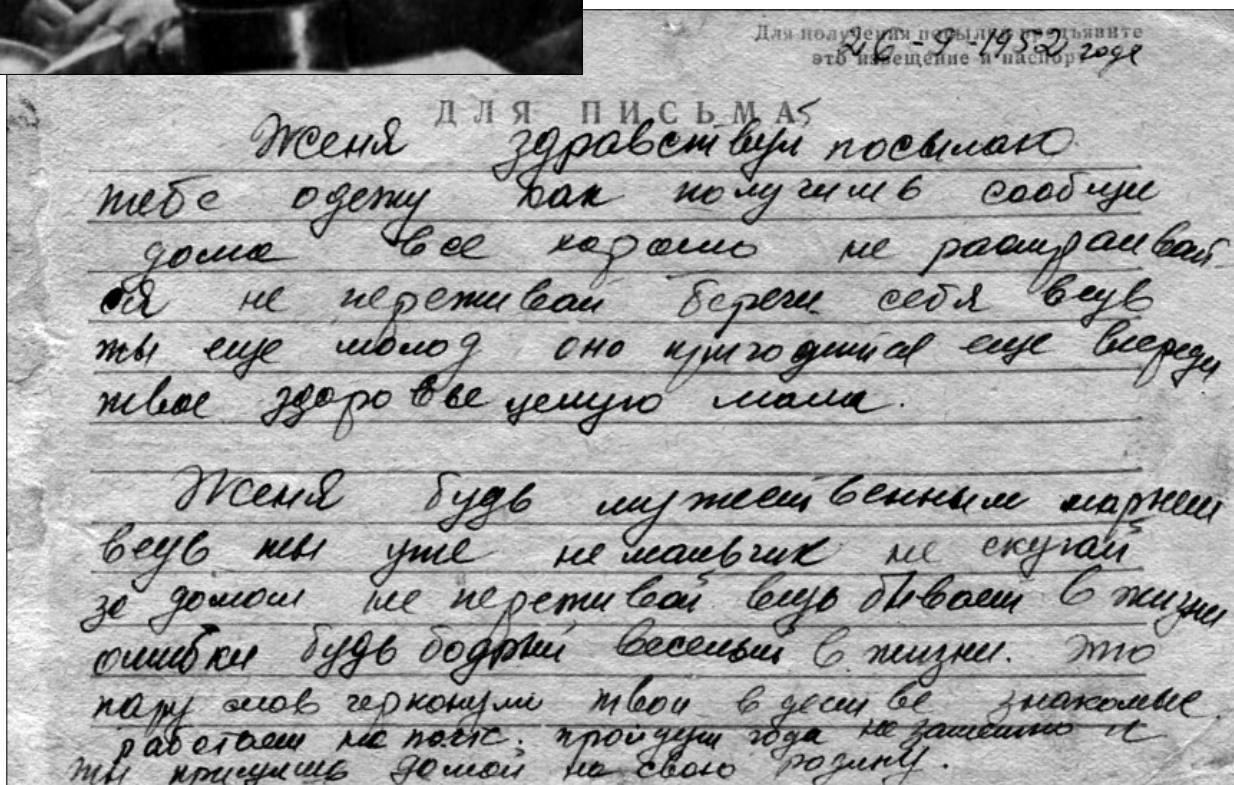 Для получения посылки предъявите
26-9-1952 года
это извещение и паспорт
ДЛЯ ПИСЬМА
Женя здравствуй посылаю
тебе одежу как получишь сообщи
дома все хорошо не расстраивай-
ся не переживай береги себя ведь
ты еще молод оно пригодится еще впереди
твое здоровье целую мама.
Женя будь мужественным парнем
ведь ты уже не мальчик не скучай
за домом не переживай ведь бывает в жизни
ошибки будь бодрый веселый в жизни. Это
пару слов черконули твои в дестве знакомые.
работаем на пройдут года незаметно и
ты домой на свою родину.